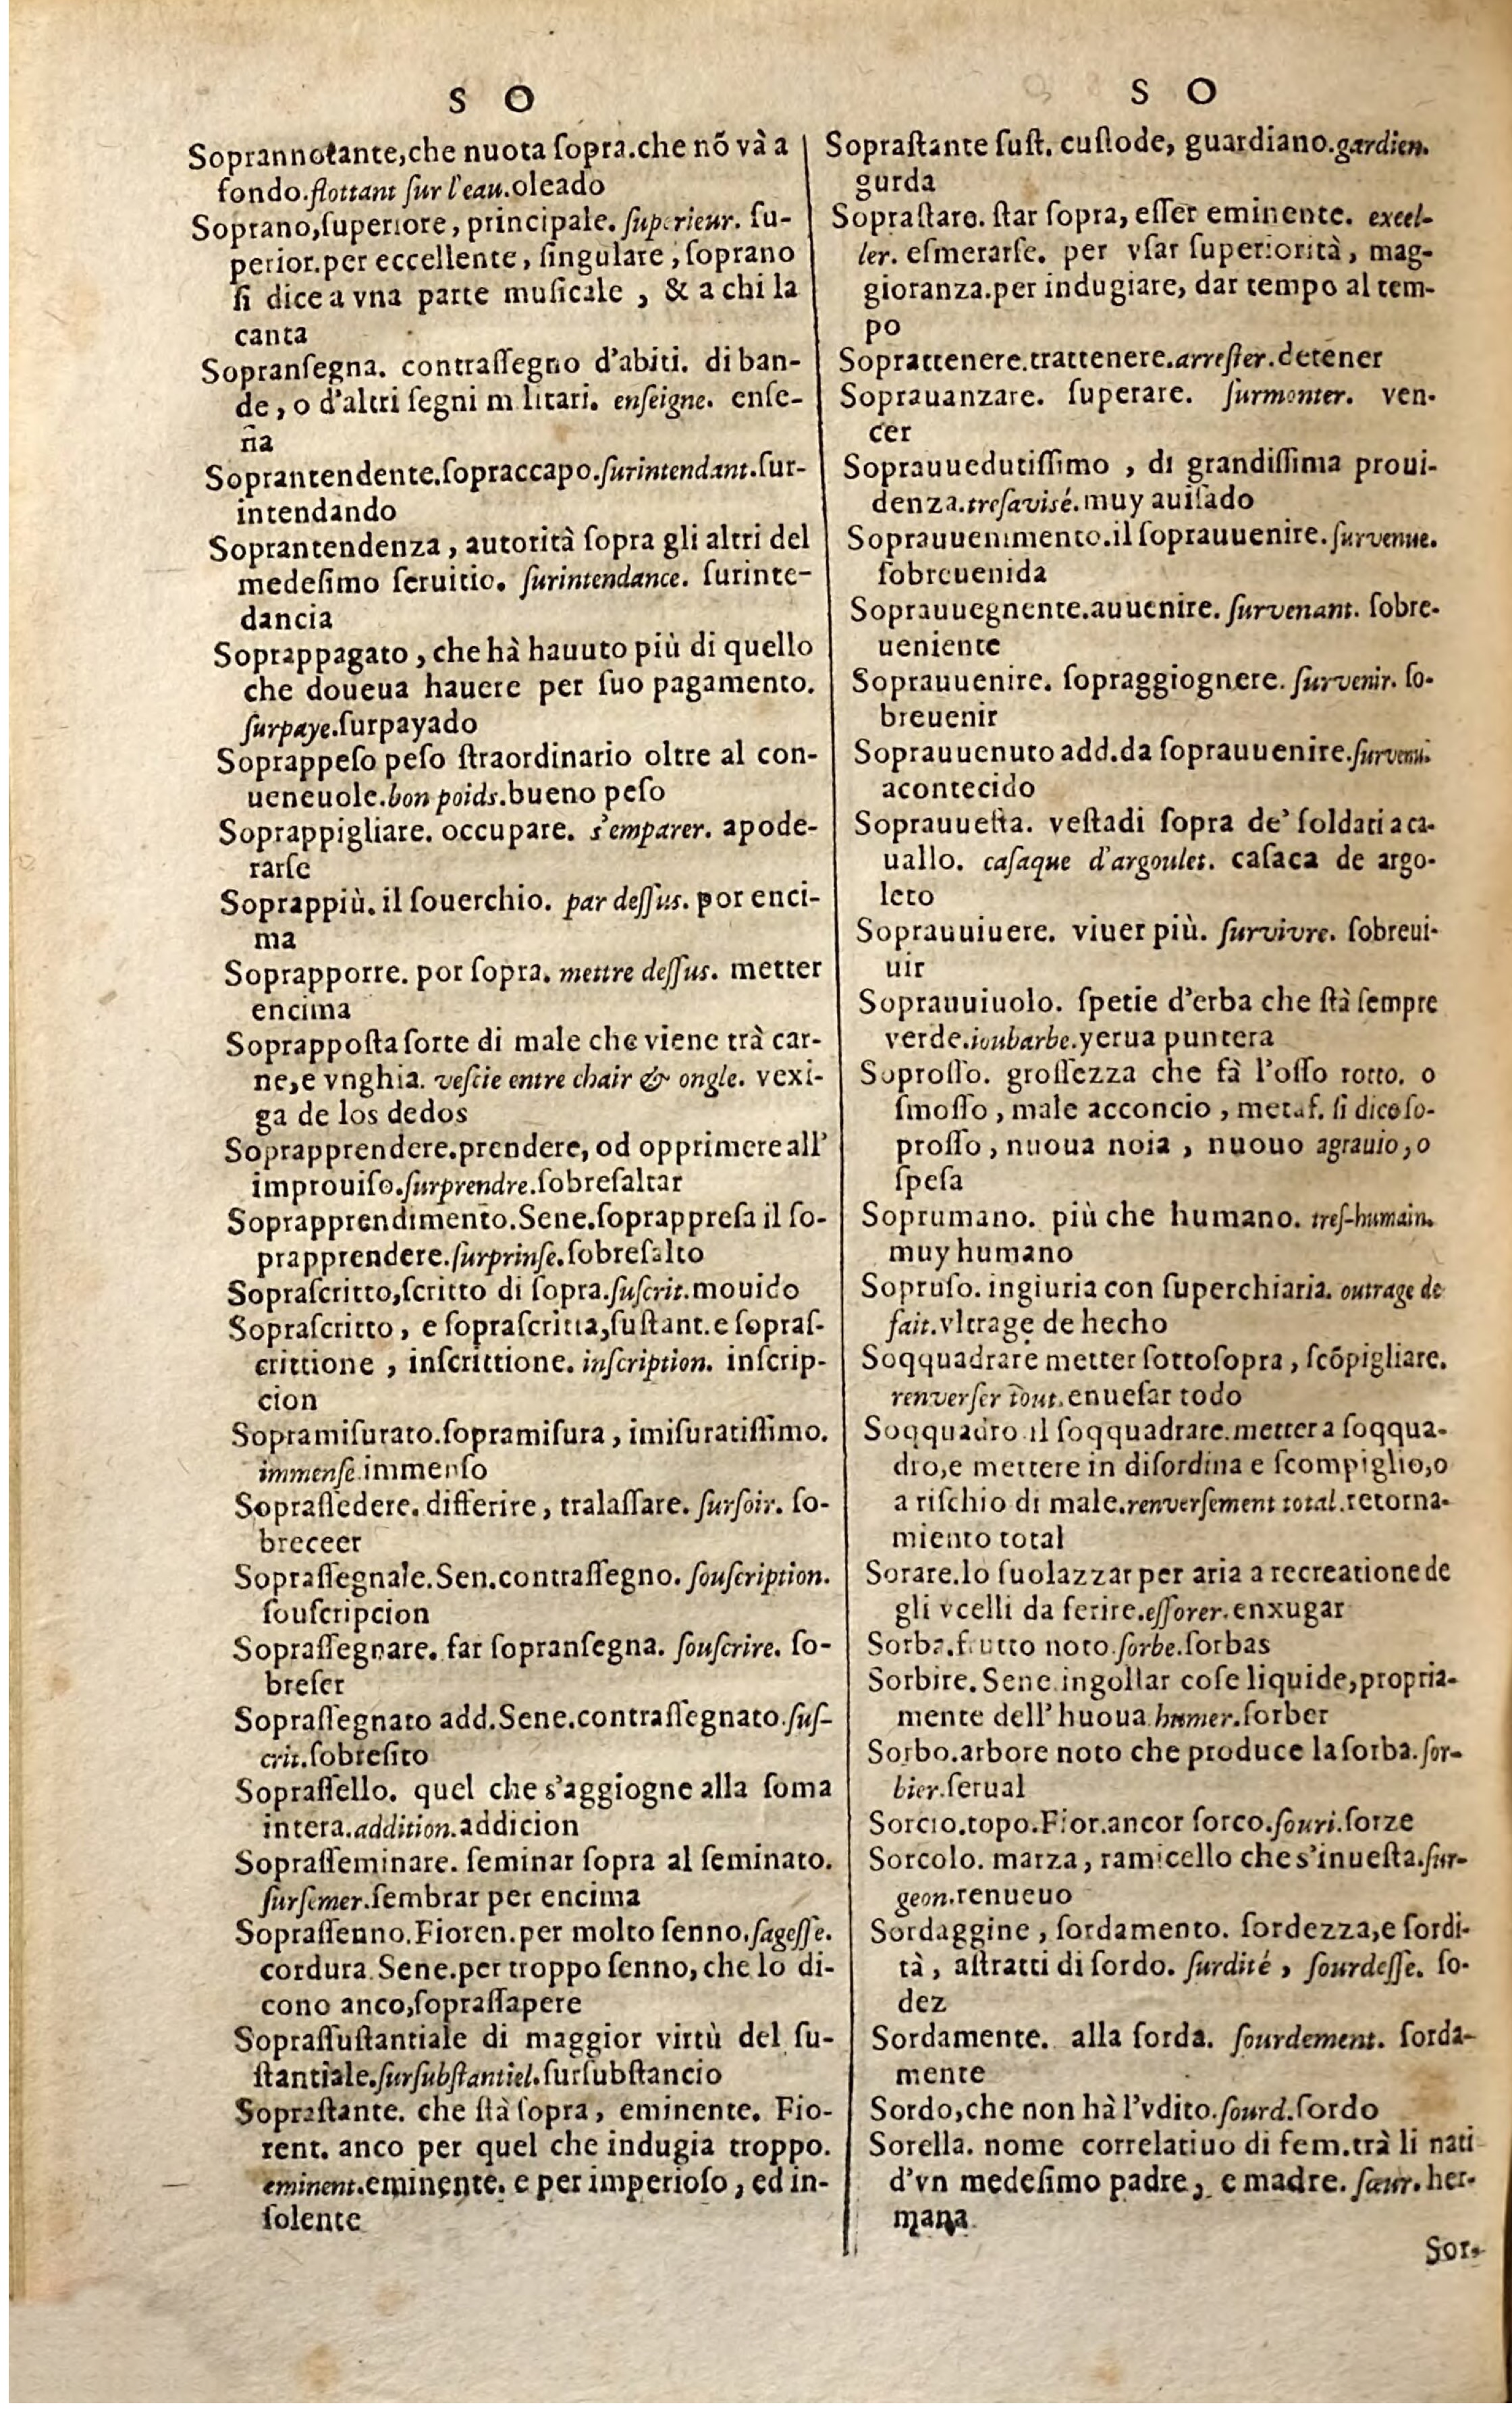 S O
Soprannotante,che nuota ſopra.che nõ và a
fondo.flottant ſur l'eau.oleado
Soprano,ſuperiore, principale. ſuperieur. ſu-
perior.per eccellente, ſingulare, ſoprano
ſi dice a vna parte muſicale , & a chi la
canta
Sopranſegna. contraſſegno d'abiti. di ban-
de, o d'altri ſegni militari. enſeigne. enſe-
ña
Soprantendente.ſopraccapo.ſurintendant.ſur-
intendando
Soprantendenza, autorità ſopra gli altri del
medeſimo ſeruitio. ſurintendance. ſurinte-
dancia
Soprappagato, che hà hauuto più di quello
che doueua hauere per ſuo pagamento.
ſurpaye.ſurpayado
Soprappeſo peſo ſtraordinario oltre al con-
ueneuole.bon poids.bueno peſo
Soprappigliare. occupare. s'emparer. apode-
rarſe
Soprappiù. il ſouerchio. par deſſus. por enci-
ma
Soprapporre. por ſopra. mettre deſſus. metter
encima
Soprappoſta ſorte di male che viene trà car-
ne,e vnghia. veſcie entre chair & ongle. vexi-
ga de los dedos
Soprapprendere.prendere, od opprimere all'
improuiſo.ſurprendre.ſobreſaltar
Soprapprendimento.Sene.ſoprappreſa il ſo-
prapprendere.ſurprinſe.ſobreſalto
Sopraſcritto,ſcritto di ſopra.ſuſcrit.mouido
Sopraſcritto, e ſopraſcritta,ſuſtant.e ſopraſ-
crittione , inſcrittione. inſcription. inſcrip-
cion
Sopramiſurato.ſopramiſura, imiſuratiſſimo.
immenſe.immenſo
Sopraſſedere. differire, tralaſſare. ſurſoir. ſo-
breceer
Sopraſſegnale.Sen.contraſſegno. ſouſcription.
ſouſcripcion
Sopraſſegnare. far ſopranſegna. ſouſcrire. ſo-
breſer
Sopraſſegnato add.Sene.contraſſegnato.ſuſ-
crit.ſobreſito
Sopraſſello. quel che s'aggiogne alla ſoma
intera.addition.addicion
Sopraſſeminare. ſeminar ſopra al ſeminato.
ſurſemer.ſembrar per encima
Sopraſſenno.Fioren.per molto ſenno.ſageſſe.
cordura.Sene.per troppo ſenno, che lo di-
cono anco,ſopraſſapere
Sopraſſuſtantiale di maggior virtù del ſu-
ſtantiale.ſurſubſtantiel.ſurſubſtancio
Sopraſtante. che ſtà ſopra, eminente. Fio-
rent. anco per quel che indugia troppo.
eminent.eminente. e per imperioſo, ed in-
ſolente
S O
Sopraſtante ſuſt. cuſtode, guardiano.gardien.
gurda
Sopraſtare. ſtar ſopra, eſſer eminente. excel-
ler. eſmerarſe. per vſar ſuperiorità, mag-
gioranza.per indugiare, dar tempo al tem-
po
Soprattenere.trattenere.arreſter.detener
Soprauanzare. ſuperare. ſurmonter. ven-
cer
Soprauuedutiſſimo , di grandiſſima proui-
denza.treſavisé.muy auiſado
Soprauuenimento.il ſoprauuenire.ſurvenue.
ſobreuenida
Soprauuegnente.auuenire. ſurvenant. ſobre-
ueniente
Soprauuenire. ſopraggiognere. ſurvenir. ſo-
breuenir
Soprauuenuto add.da ſoprauuenire.ſurvenu.
acontecido
Soprauueſta. veſta di ſopra de' ſoldati a ca-
uallo. caſaque d'argoulet. caſaca de argo-
leto
Soprauuiuere. viuer più. ſurvivre. ſobreui-
uir
Soprauuiuolo. ſpetie d'erba che ſtà ſempre
verde.ioubarbe.yerua puntera
Soproſſo. groſſezza che fà l'oſſo rotto. o
ſmoſſo, male acconcio, metaf. ſi dice ſo-
proſſo, nuoua noia , nuouo agrauio, o
ſpeſa
Soprumano. più che humano. treſ-humain.
muy humano
Sopruſo. ingiuria con ſuperchiaria. outrage de
fait.vltrage de hecho
Soqquadrare metter ſottoſopra, ſcõpigliare.
renverſer tout.enueſar todo
Soqquadro il ſoqquadrare.metter a ſoqqua-
dro,e mettere in diſordina e ſcompiglio,o
a riſchio di male.renverſement total.retorna-
miento total
Sorare.lo ſuolazzar per aria a recreatione de
gli vcelli da ferire.eſſorer.enxugar
Sorba.frutto noto.ſorbe.ſorbas
Sorbire.Sene.ingollar coſe liquide,propria-
mente dell'huoua.humer.ſorber
Sorbo.arbore noto che produce la ſorba.ſor-
bier.ſerual
Sorcio.topo.Fior.ancor ſorco.ſouri.ſorze
Sorcolo. marza, ramicello che s'inueſta.ſur-
geon.renueuo
Sordaggine, ſordamento. ſordezza,e ſordi-
tà, aſtratti di ſordo. ſurdité , ſourdeſſe. ſo-
dez
Sordamente. alla ſorda. ſourdement. ſorda-
mente
Sordo,che non hà l'vdito.ſourd.ſordo
Sorella. nome correlatiuo di fem.trà li nati
d'vn medeſimo padre, e madre. ſœur. her-
mana
Sor-